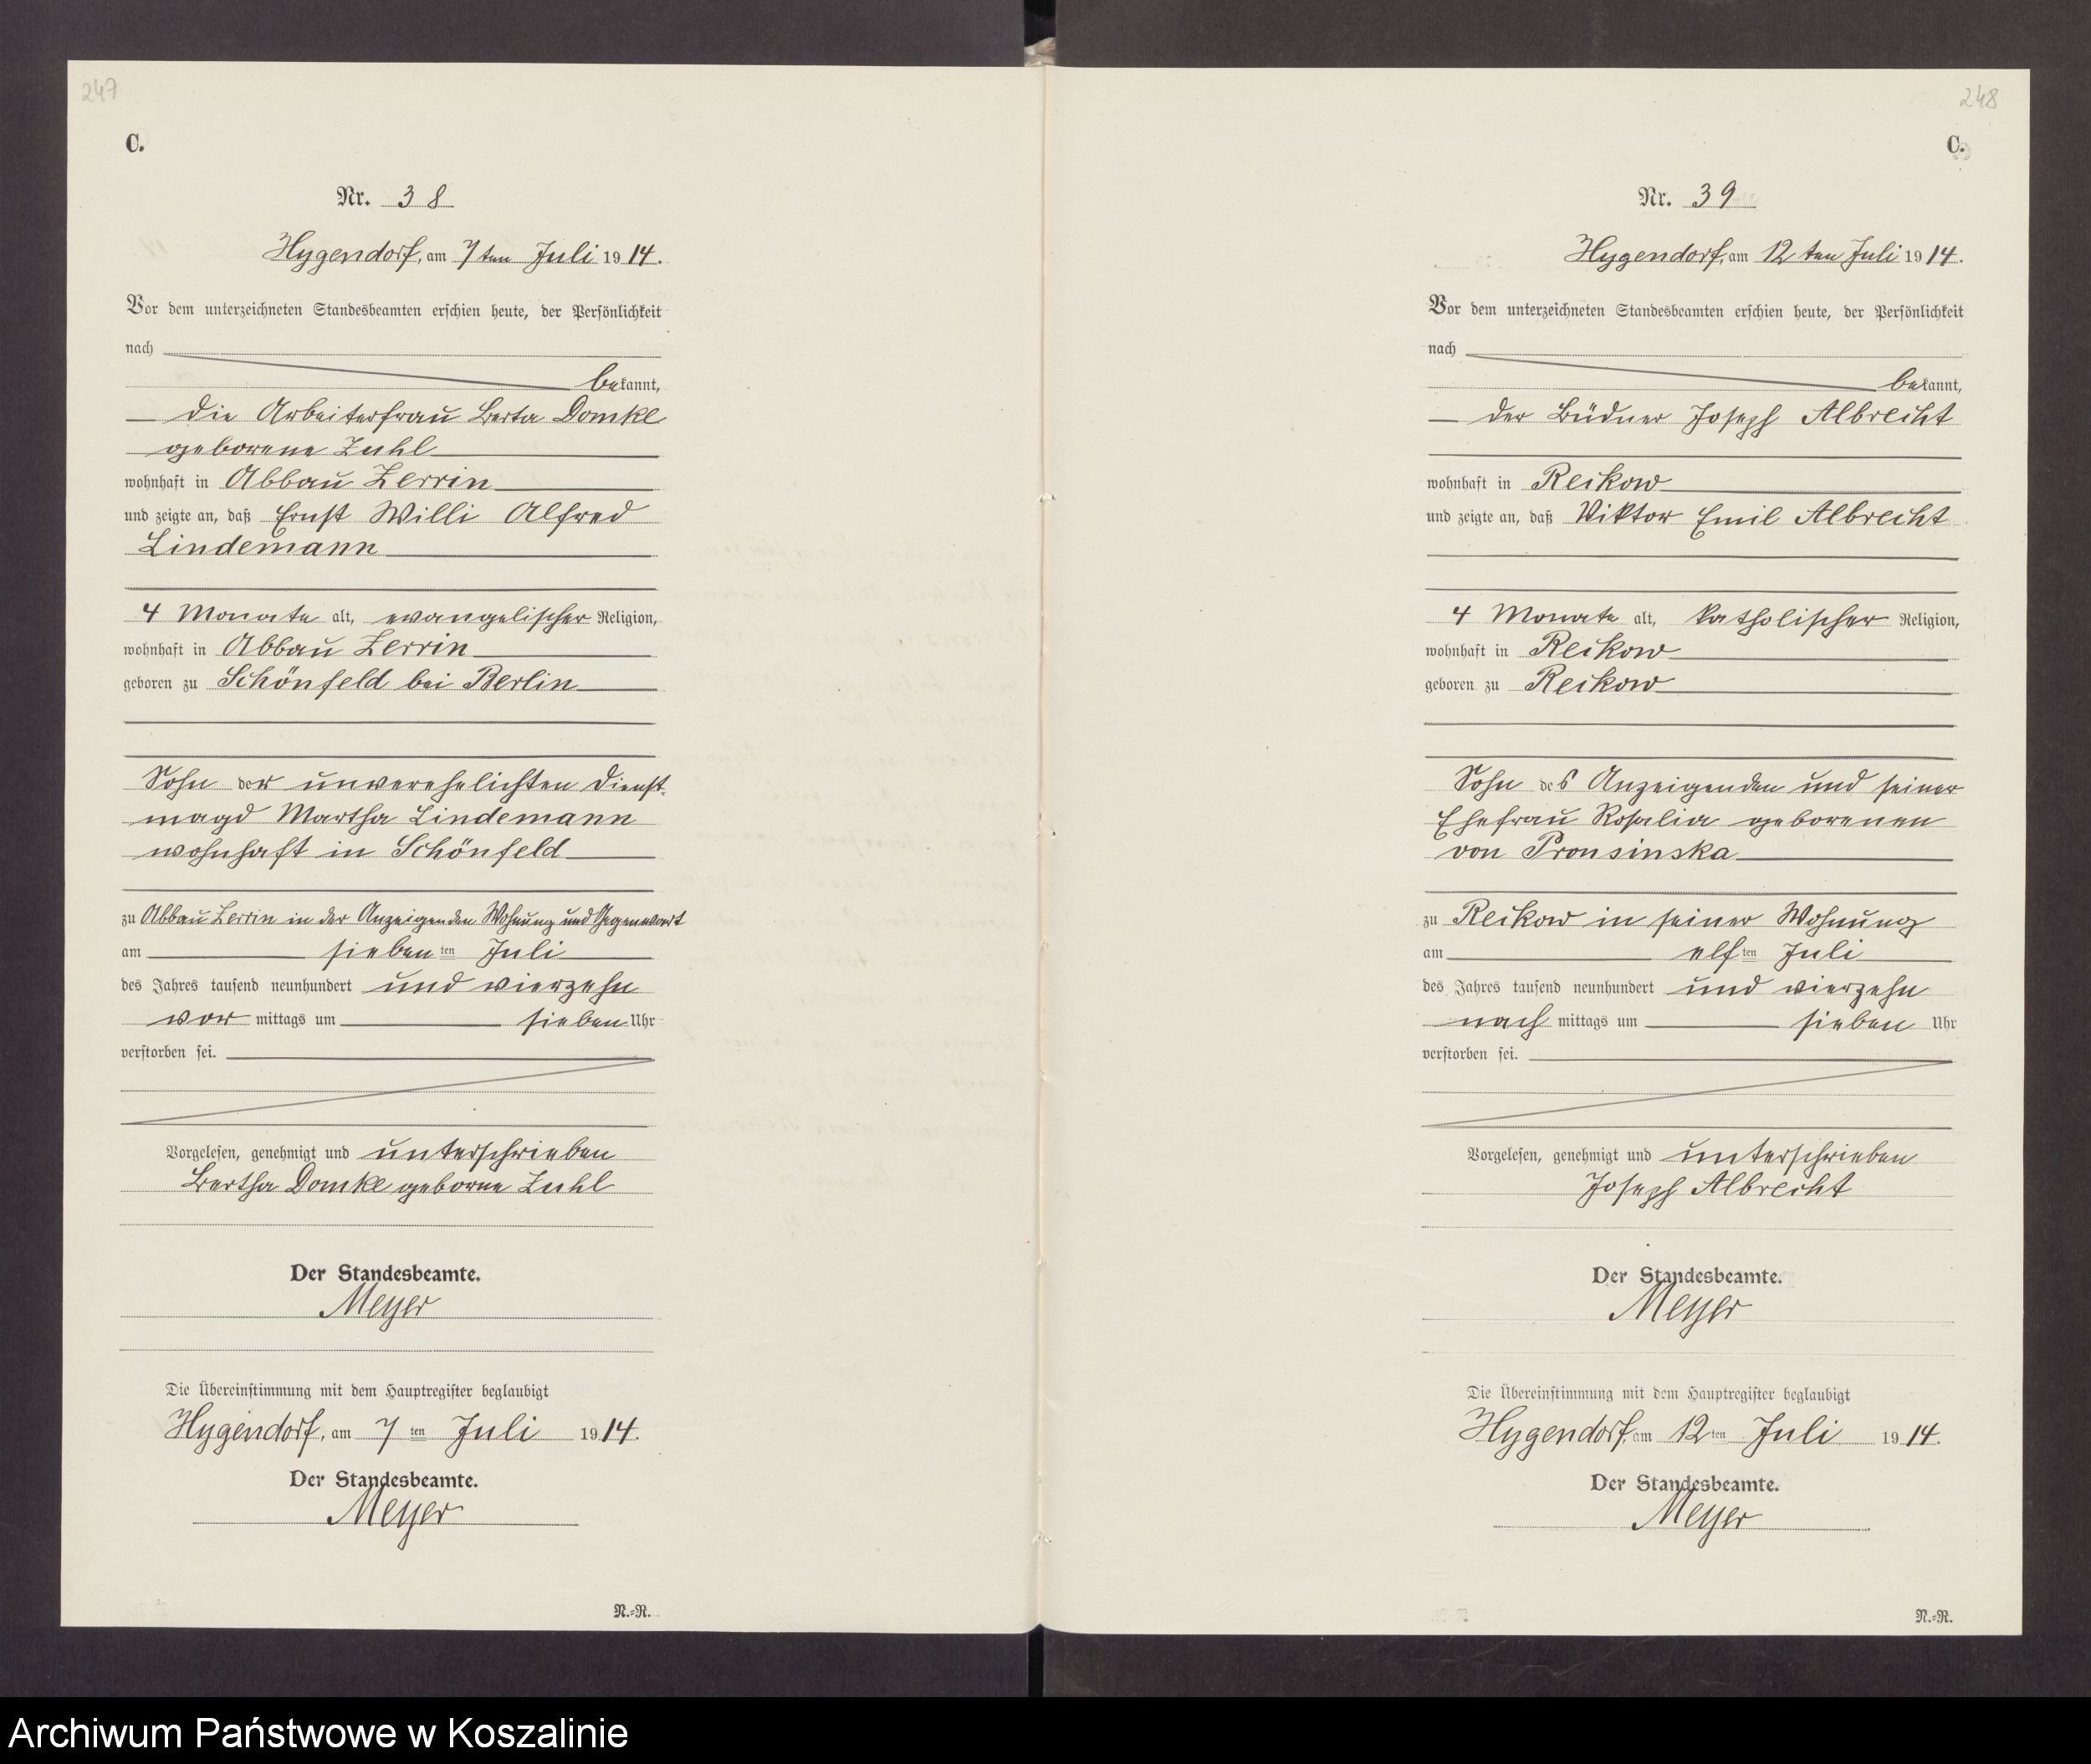 247
C.
Nr. 38
Hygendorf, am 7ten Juli 1914.
Vor dem unterzeichneten Standesbeamten erschien heute, der Persönlichkeit
nach
bekannt,
die Arbeiterfrau Berta Domke
geborene Zuhl
wohnhaft in Abbau Zerrin
und zeigte an, daß Ernst Willi Alfred
Lindemann
4 Monate alt, evangelischer Religion,
wohnhaft in Abbau Zerrin
geboren zu Schönfeld bei Berlin
Sohn der unverehelichten Dienst-
magd Martha Lindemann
wohnhaft in Schönfeld
zu Abbau Zerrin in der Anzeigenden Wohnung und Gegenwart
am siebenten Juli
des Jahres tausend neunhundert und vierzehn
vor mittags um sieben Uhr
verstorben sei.
Vorgelesen, genehmigt und unterschrieben
Bertha Domke geborne Zuhl
Der Standesbeamte.
Meyer
Die Übereinstimmung mit dem Hauptregister beglaubigt
Hygendorf, am 7ten Juli 1914.
Der Standesbeamte.
Meyer
N.=R.
248
C.
Nr. 39
Hygendorf, am 12ten Juli 1914.
Vor dem unterzeichneten Standesbeamten erschien heute, der Persönlichkeit
nach
bekannt,
der Büdner Joseph Albrecht
wohnhaft in Reikow
und zeigte an, daß Viktor Emil Albrecht
4 Monate alt, katholischer Religion,
wohnhaft in Reikow
geboren zu Reikow
Sohn des Anzeigenden und seiner
Ehefrau Rosalia geborenen
von Pronsinska
zu Reikow in seiner Wohnung
am elften Juli
des Jahres tausend neunhundert und vierzehn
nach mittags um sieben Uhr
verstorben sei.
Vorgelesen, genehmigt und unterschrieben
Joseph Albrecht
Der Standesbeamte.
Meyer
Die Übereinstimmung mit dem Hauptregister beglaubigt
Hygendorf, am 12ten Juli 1914.
Der Standesbeamte.
Meyer
N.=R.
Archiwum Państwowe w Koszalinie